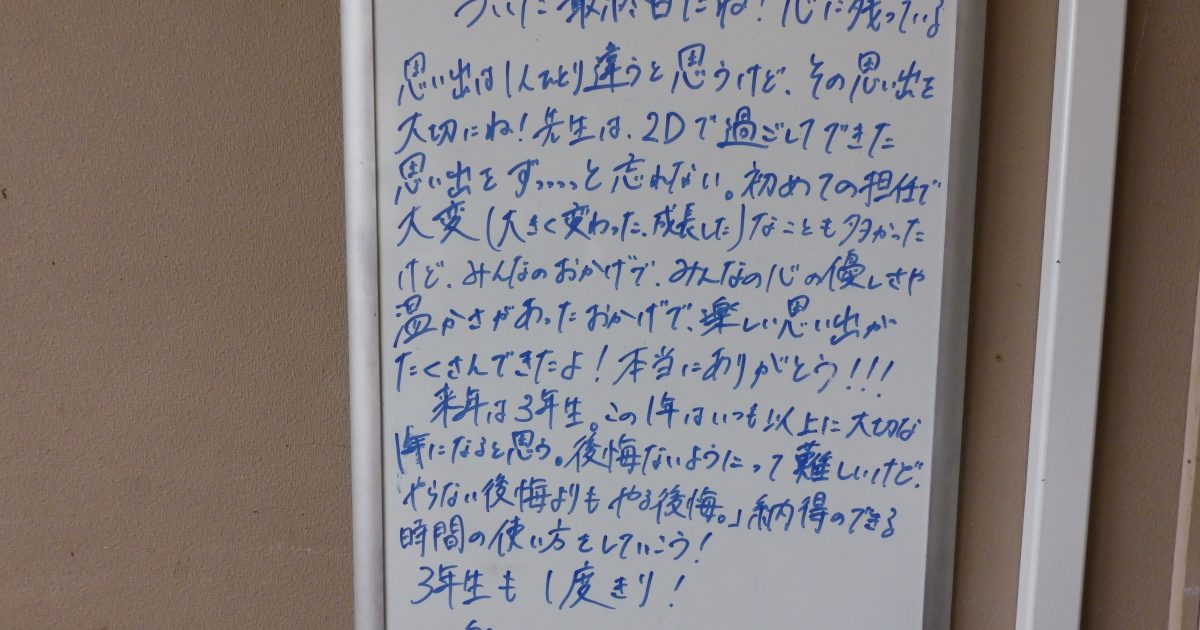 ついに最終日だね！心に残っている
思い出は1人ひとり違うと思うけど、その思い出を
大切にね！先生は、2Dで過ごしてできた
思い出をずっっっっと忘れない。初めての担任で
大変(大きく変わった、成長した)なことも多かった
けど、みんなのおかげで、みんなの心の優しさや
温かさがあったおかげで、楽しい思い出が
たくさんできたよ！本当にありがとう！！！
来年は3年生。この1年はいつも以上に大切な
1年になると思う。後悔ないようにって難しいけど、
やらない後悔よりもやる後悔。」納得のできる
時間の使い方をしていこう！
3年生も1度きり！